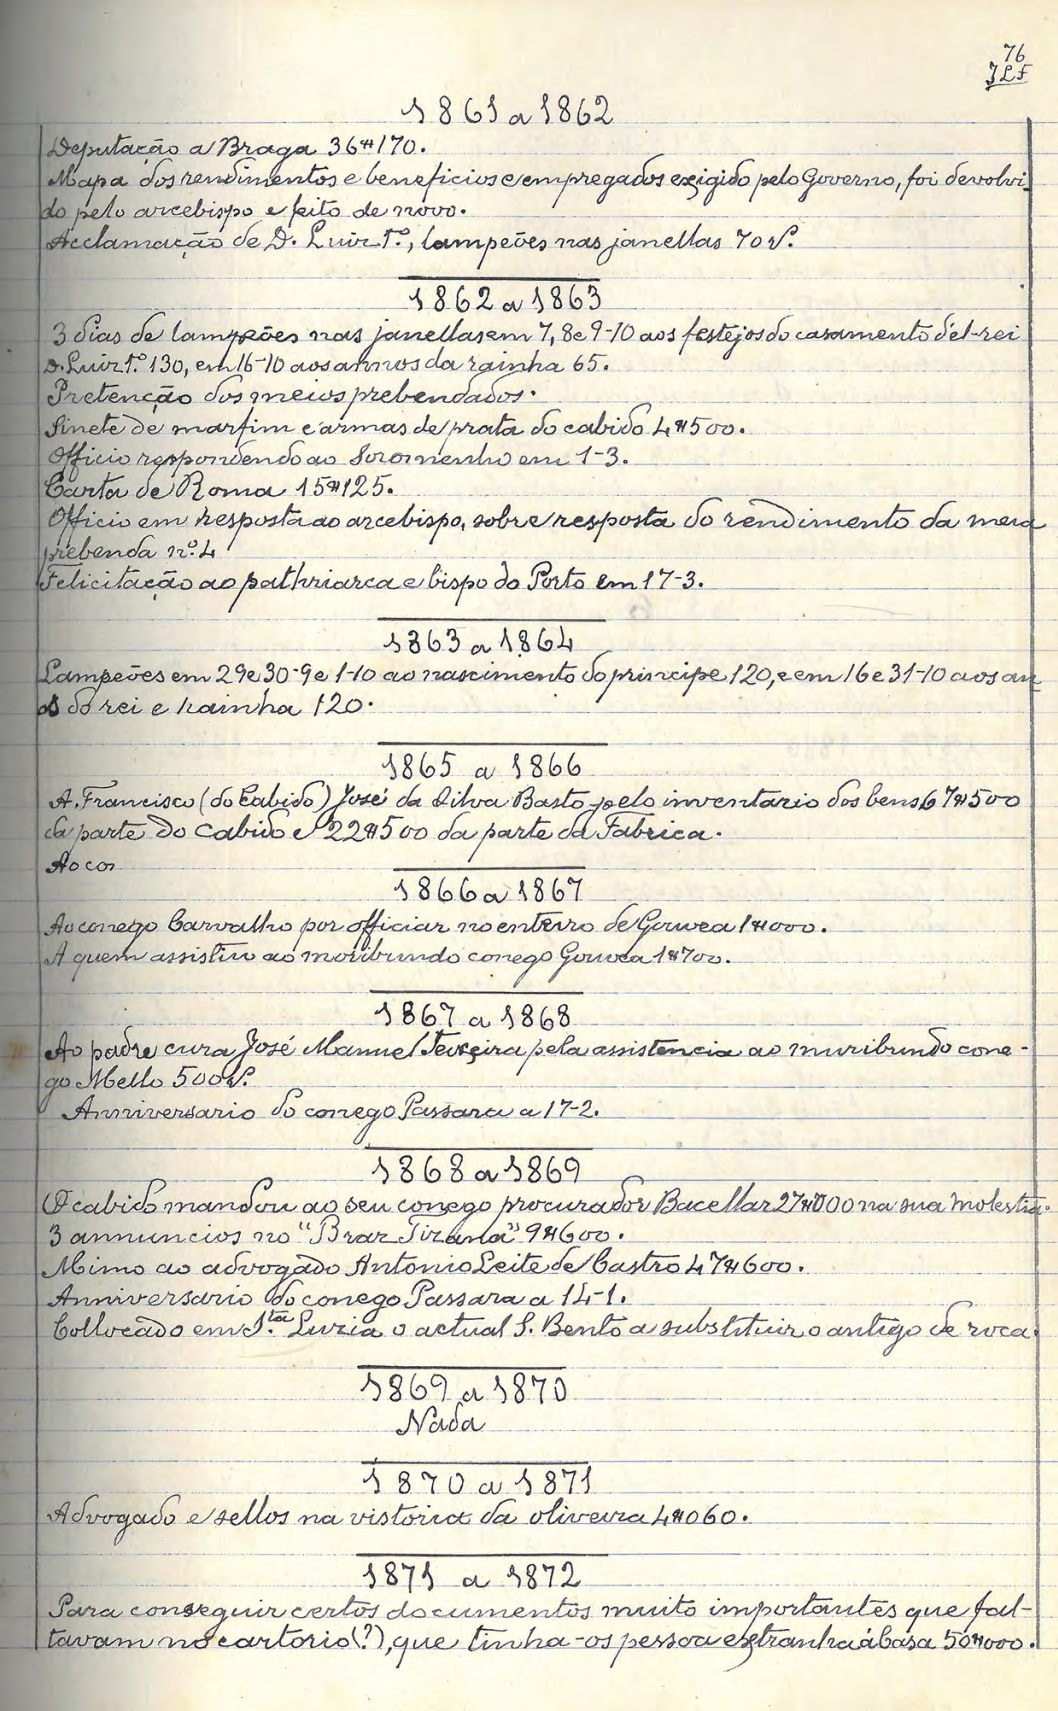 76
JLF
1861 a 1862
Deputação a Braga 36#170.
Mapa dos rendimentos e beneficios e empregados exigido pelo Governo, foi devolvi-
do pelo arcebispo e feito de novo.
Acclamação de D. Luiz 1.º, lampeões nas janellas 70 rs.
1862 a 1863
3 dias de lampeões nas janellas em 7, 8 e 9-10 aos festejos do casamento d'el-rei
D. Luiz 1.º 130, em 16-10 aos annos da rainha 65.
Pretenção dos meios prebendados.
Sinete de marfim e armas de prata do cabido 4#500.
Officio respondendo ao Soromenho em 1-3.
Carta de Roma 15#125.
Officio em resposta ao arcebispo, sobre resposta do rendimento da meia
prebenda n.º 4
Felicitação ao pathriarca e bispo do Porto em 17-3.
1863 a 1864
Lampeões em 29 e 30-9 e 1-10 ao nascimento do principe 120, e em 16 e 31-10 aos an
os do rei e rainha 120.
1865 a 1866
A. Francisco (do Cabido) José da Silva Basto pelo inventario dos bens 67#500
da parte do cabido e 22#500 da parte da Fabrica.
Ao con
1866 a 1867
Ao conego Carvalho por officiar no enterro de Gouvea 1#000.
A quem assistiu ao moribundo conego Gouvea 1#700.
1867 a 1868
Ao padre cura José Manuel Teixeira pela assistencia ao muribundo cone-
go Mello 500 rs.
Anniversario do conego Passara a 17-2.
1868 a 1869
O cabido mandou ao seu conego procurador Bacellar 27#000 na sua molestia.
3 annuncios no "Braz Tizana" 9#600.
Mimo ao advogado Antonio Leite de Castro 47#600.
Anniversario do conego Passara a 14-1.
Collocado em S.ta Luzia o actual S. Bento a substituir o antigo de roca.
1869 a 1870
Nada
1870 a 1871
Advogado e sellos na vistoria da oliveira 4#060.
1871 a 1872
Para conseguir certos documentos muito importantes que fal-
tavam no cartorio (?), que tinha-os pessoa extranha á Casa 50#000.